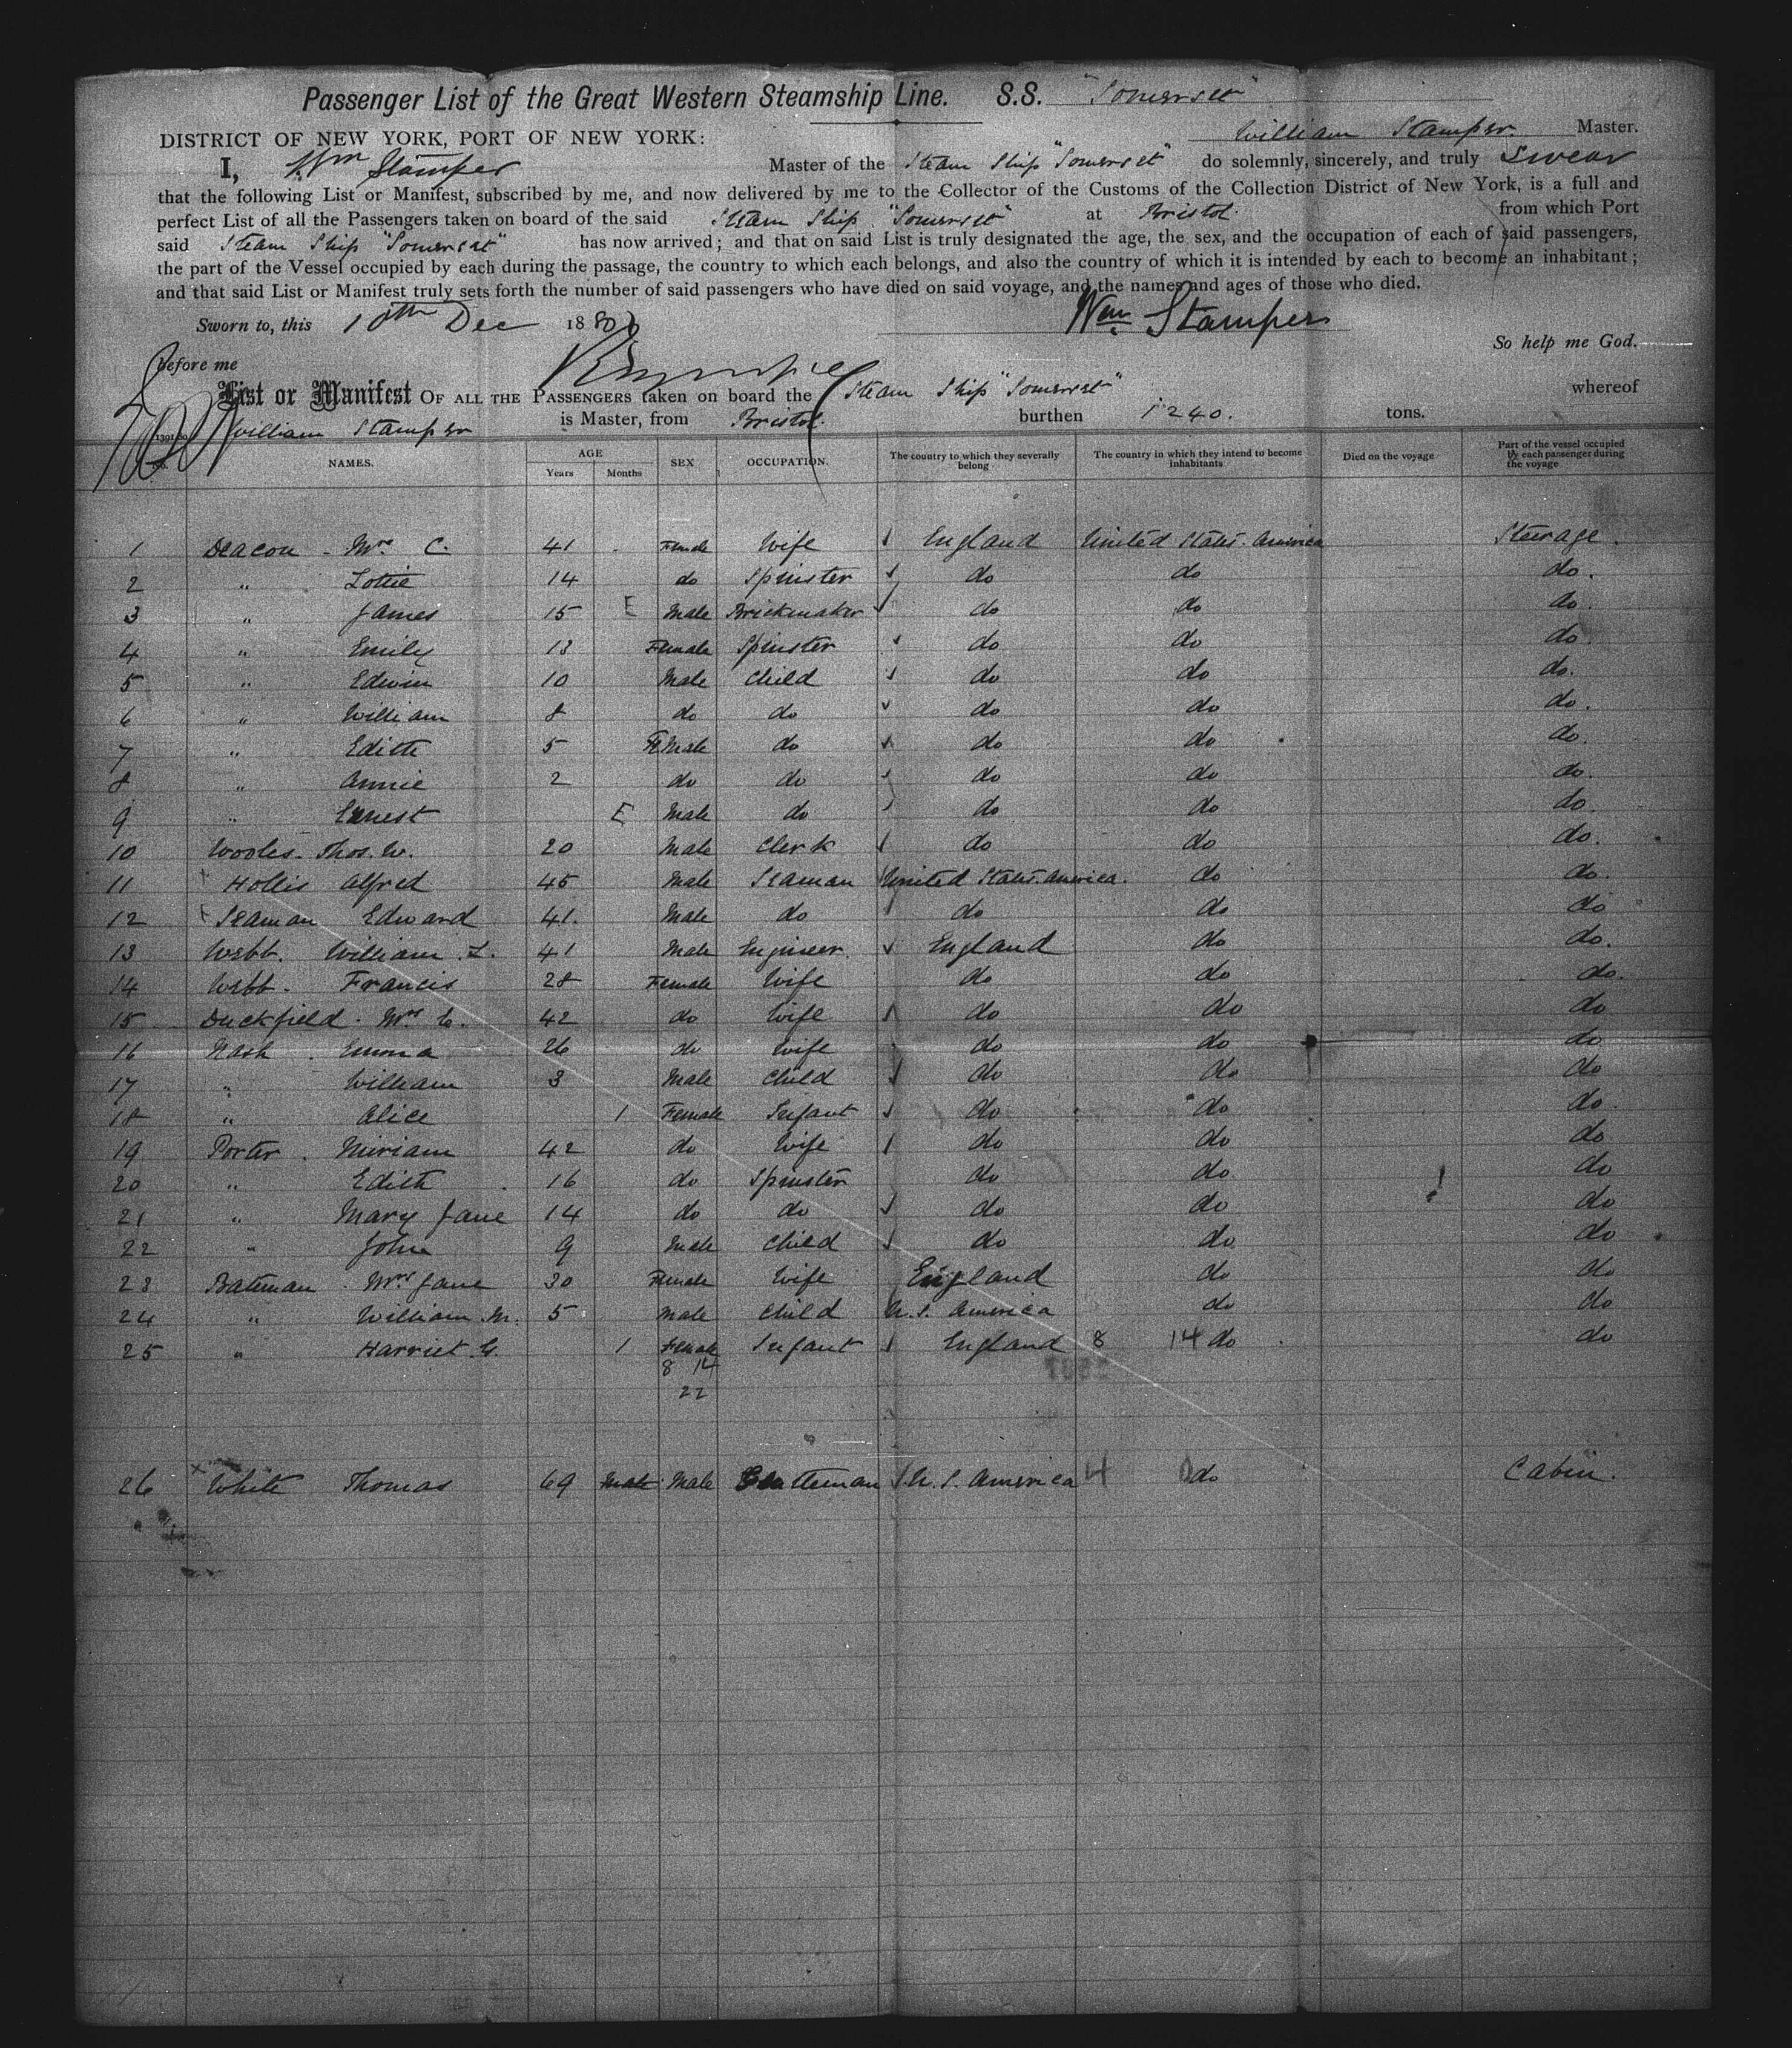 Passenger List of the Great Western Steamship Line. S.S. "Somerset"
DISTRICT OF NEW YORK, PORT OF NEW YORK: William Stamper. Master.
I, Wm Stamper Master of the Steam Ship "Somerset" do solemnly, sincerely, and truly swear
that the following List or Manifest, subscribed by me, and now delivered by me to the Collector of the Customs of the Collection District of New York, is a full and
perfect List of all the Passengers taken on board of the said Steam Ship "Somerset" at Bristol. from which Port
said Steam Ship "Somerset" has now arrived; and that on said List is truly designated the age, the sex, and the occupation of each of said passengers,
the part of the Vessel occupied by each during the passage, the country to which each belongs, and also the country of which it is intended by each to become an inhabitant;
and that said List or Manifest truly sets forth the number of said passengers who have died on said voyage, and the names and ages of those who died.
Sworn to, this 10th Dec 188 Wm Stamper
So help me God.
Before me
List or Manifest OF ALL THE PASSENGERS taken on board the Steam Ship "Somerset" whereof
William Stamper is Master, from Bristol. burthen 1240. tons.
NAMES. AGE Years Months SEX OCCUPATION. The country to which they severally belong The country in which they intend to become inhabitants Died on the voyage Part of the vessel occupied by each passenger during the voyage
1 Deacon - Mrs C. 41 Female Wife England United States. America Steerage.
2 " Lottie 14 do Spinster do do do.
3 " James 15 E Male Brickmaker do do do.
4 " Emily 13 Female Spinster do do do.
5 " Edwin 10 Male Child do do do.
6 " William 8 do do do do do.
7 " Edith 5 Female do do do do.
8 " Annie 2 do do do do do.
9 " Ernest E Male do do do do.
10 Thos. W. 20 Male Clerk do do do.
11 Hollis Alfred 45 Male Seaman United States. America. do do.
12 Seaman Edward 41. Male do do do do
13 Webb. William L. 41 Male Engineer. England do do.
14 Webb. Francis 28 Female Wife do do do.
15 Duckfield. Mrs C. 42 do Wife do do do
16 Nash. Emma 26 do Wife do do do
17 " William 3 Male Child do do do
18 " Alice 1 Female Infant do do do.
19 Porter. Miriam 42 do Wife do do do
20 " Edith 16 do Spinster do do do
21 " Mary Jane 14 do do do do do
22 " John 9 Male Child do do do
23 Bateman. Mrs Jane 30 Female Wife England do do
24 " William M. 5 Male Child U.S. America do do
25 " Harriet G. 1 Female Infant England 8 14 do do
8 14
22
26 White Thomas 69 Male Male Gentleman U.S. America 4 do Cabin.